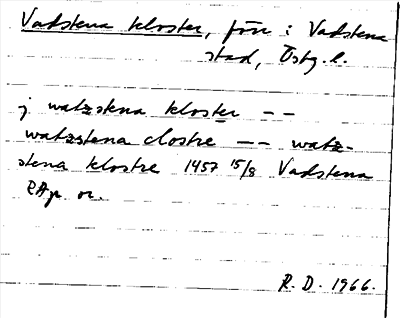 Vadstena kloster, förr i Vadstena
stad, Östg. l.
j watzstena kloster --
watzstena clostre -- watz-
stena klostre 1457 15/8 Vadstena
RAp or.
R. D. 1966.